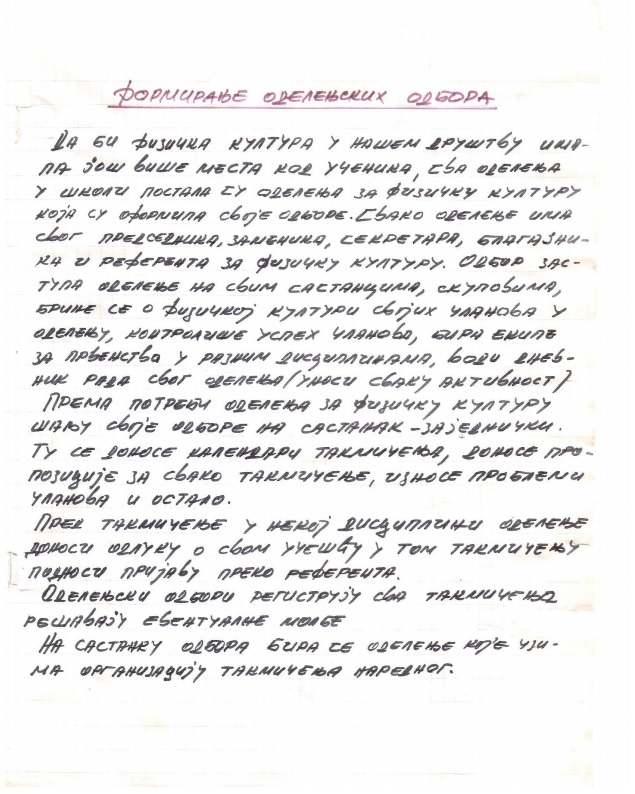 ФОРМИРАЊЕ ОДЕЛЕЊСКИХ ОДБОРА
ДА БИ ФИЗИЧКА КУЛТУРА У НАШЕМ ДРУШТВУ ИМА-
ЛА ЈОШ ВИШЕ МЕСТА КОД УЧЕНИКА, СВА ОДЕЛЕЊА
У ШКОЛИ ПОСТАЛА СУ ОДЕЛЕЊА ЗА ФИЗИЧКУ КУЛТУРУ
КОЈА СУ ОФОРМИЛА СВОЈЕ ОДБОРЕ. СВАКО ОДЕЛЕЊЕ ИМА
СВОГ ПРЕДСЕДНИКА, ЗАМЕНИКА, СЕКРЕТАРА, БЛАГАЈНИ-
КА И РЕФЕРЕНТА ЗА ФИЗИЧКУ КУЛТУРУ. ОДБОР ЗАС-
ТУПА ОДЕЛЕЊЕ НА СВИМ САСТАНЦИМА, СКУПОВИМА,
БРИНЕ СЕ О ФИЗИЧКОЈ КУЛТУРИ СВОЈИХ ЧЛАНОВА У
ОДЕЛЕЊУ, КОНТРОЛИШЕ УСПЕХ ЧЛАНОВА, БИРА ЕКИПЕ
ЗА ПРВЕНСТВА У РАЗНИМ ДИСЦИПЛИНАМА, ВОДИ ДНЕВ-
НИК РАДА СВОГ ОДЕЛЕЊА (УНОСИ СВАКУ АКТИВНОСТ)
ПРЕМА ПОТРЕБИ ОДЕЛЕЊА ЗА ФИЗИЧКУ КУЛТУРУ
ШАЉУ СВОЈЕ ОДБОРЕ НА САСТАНАК - ЗАЈЕДНИЧКИ.
ТУ СЕ ДОНОСЕ КАЛЕНДАРИ ТАКМИЧЕЊА, ДОНОСЕ ПРО-
ПОЗИЦИЈЕ ЗА СВАКО ТАКМИЧЕЊЕ, ИЗНОСЕ ПРОБЛЕМИ
ЧЛАНОВА И ОСТАЛО.
ПРЕД ТАКМИЧЕЊЕ У НЕКОЈ ДИСЦИПЛИНИ ОДЕЛЕЊЕ
ДОНОСИ ОДЛУКУ О СВОМ УЧЕШЋУ У ТОМ ТАКМИЧЕЊУ
ПОДНОСИ ПРИЈАВУ ПРЕКО РЕФЕРЕНТА.
ОДЕЛЕЊСКИ ОДБОРИ РЕГИСТРУЈУ СВА ТАКМИЧЕЊА
РЕШАВАЈУ ЕВЕНТУАЛНЕ МОЛБЕ
НА САСТАНКУ ОДБОРА БИРА СЕ ОДЕЛЕЊЕ КОЈЕ УЗИ-
МА ОРГАНИЗАЦИЈУ ТАКМИЧЕЊА НАРЕДНОГ.